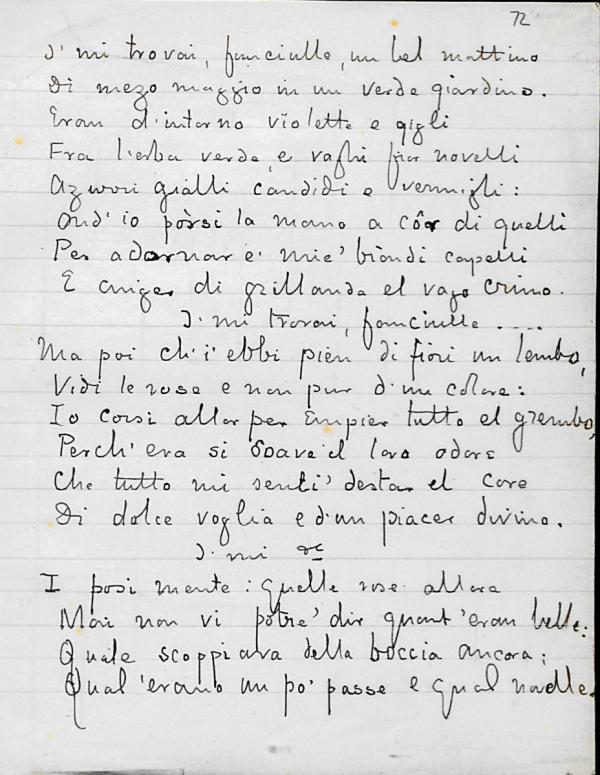 72
I' mi trovai, fanciulle, un bel mattino
Di mezo maggio in un verde giardino.
Eran d'intorno violette e gigli
Fra l'erba verde, e vaghi fior novelli
Azurri gialli candidi e vermigli:
Ond' io pòrsi la mano a côr di quelli
Per adornar e' mie' biondi capelli
E cinger di grillanda el vago crino.
I' mi trovai, fanciulle ....
Ma poi ch' i' ebbi pien di fiori un lembo,
Vidi le rose e non pur d'un colore:
Io corsi allor per empier tutto el grembo,
Perch' era sì soave il loro odore
Che tutto mi senti' destar el core
Di dolce voglia e d'un piacer divino.
I' mi etc
I posi mente: quelle rose allora
Mai non vi potre' dir quant' eran belle:
Quale scoppiava della boccia ancora;
Qual' erano un po' passe e qual novelle.